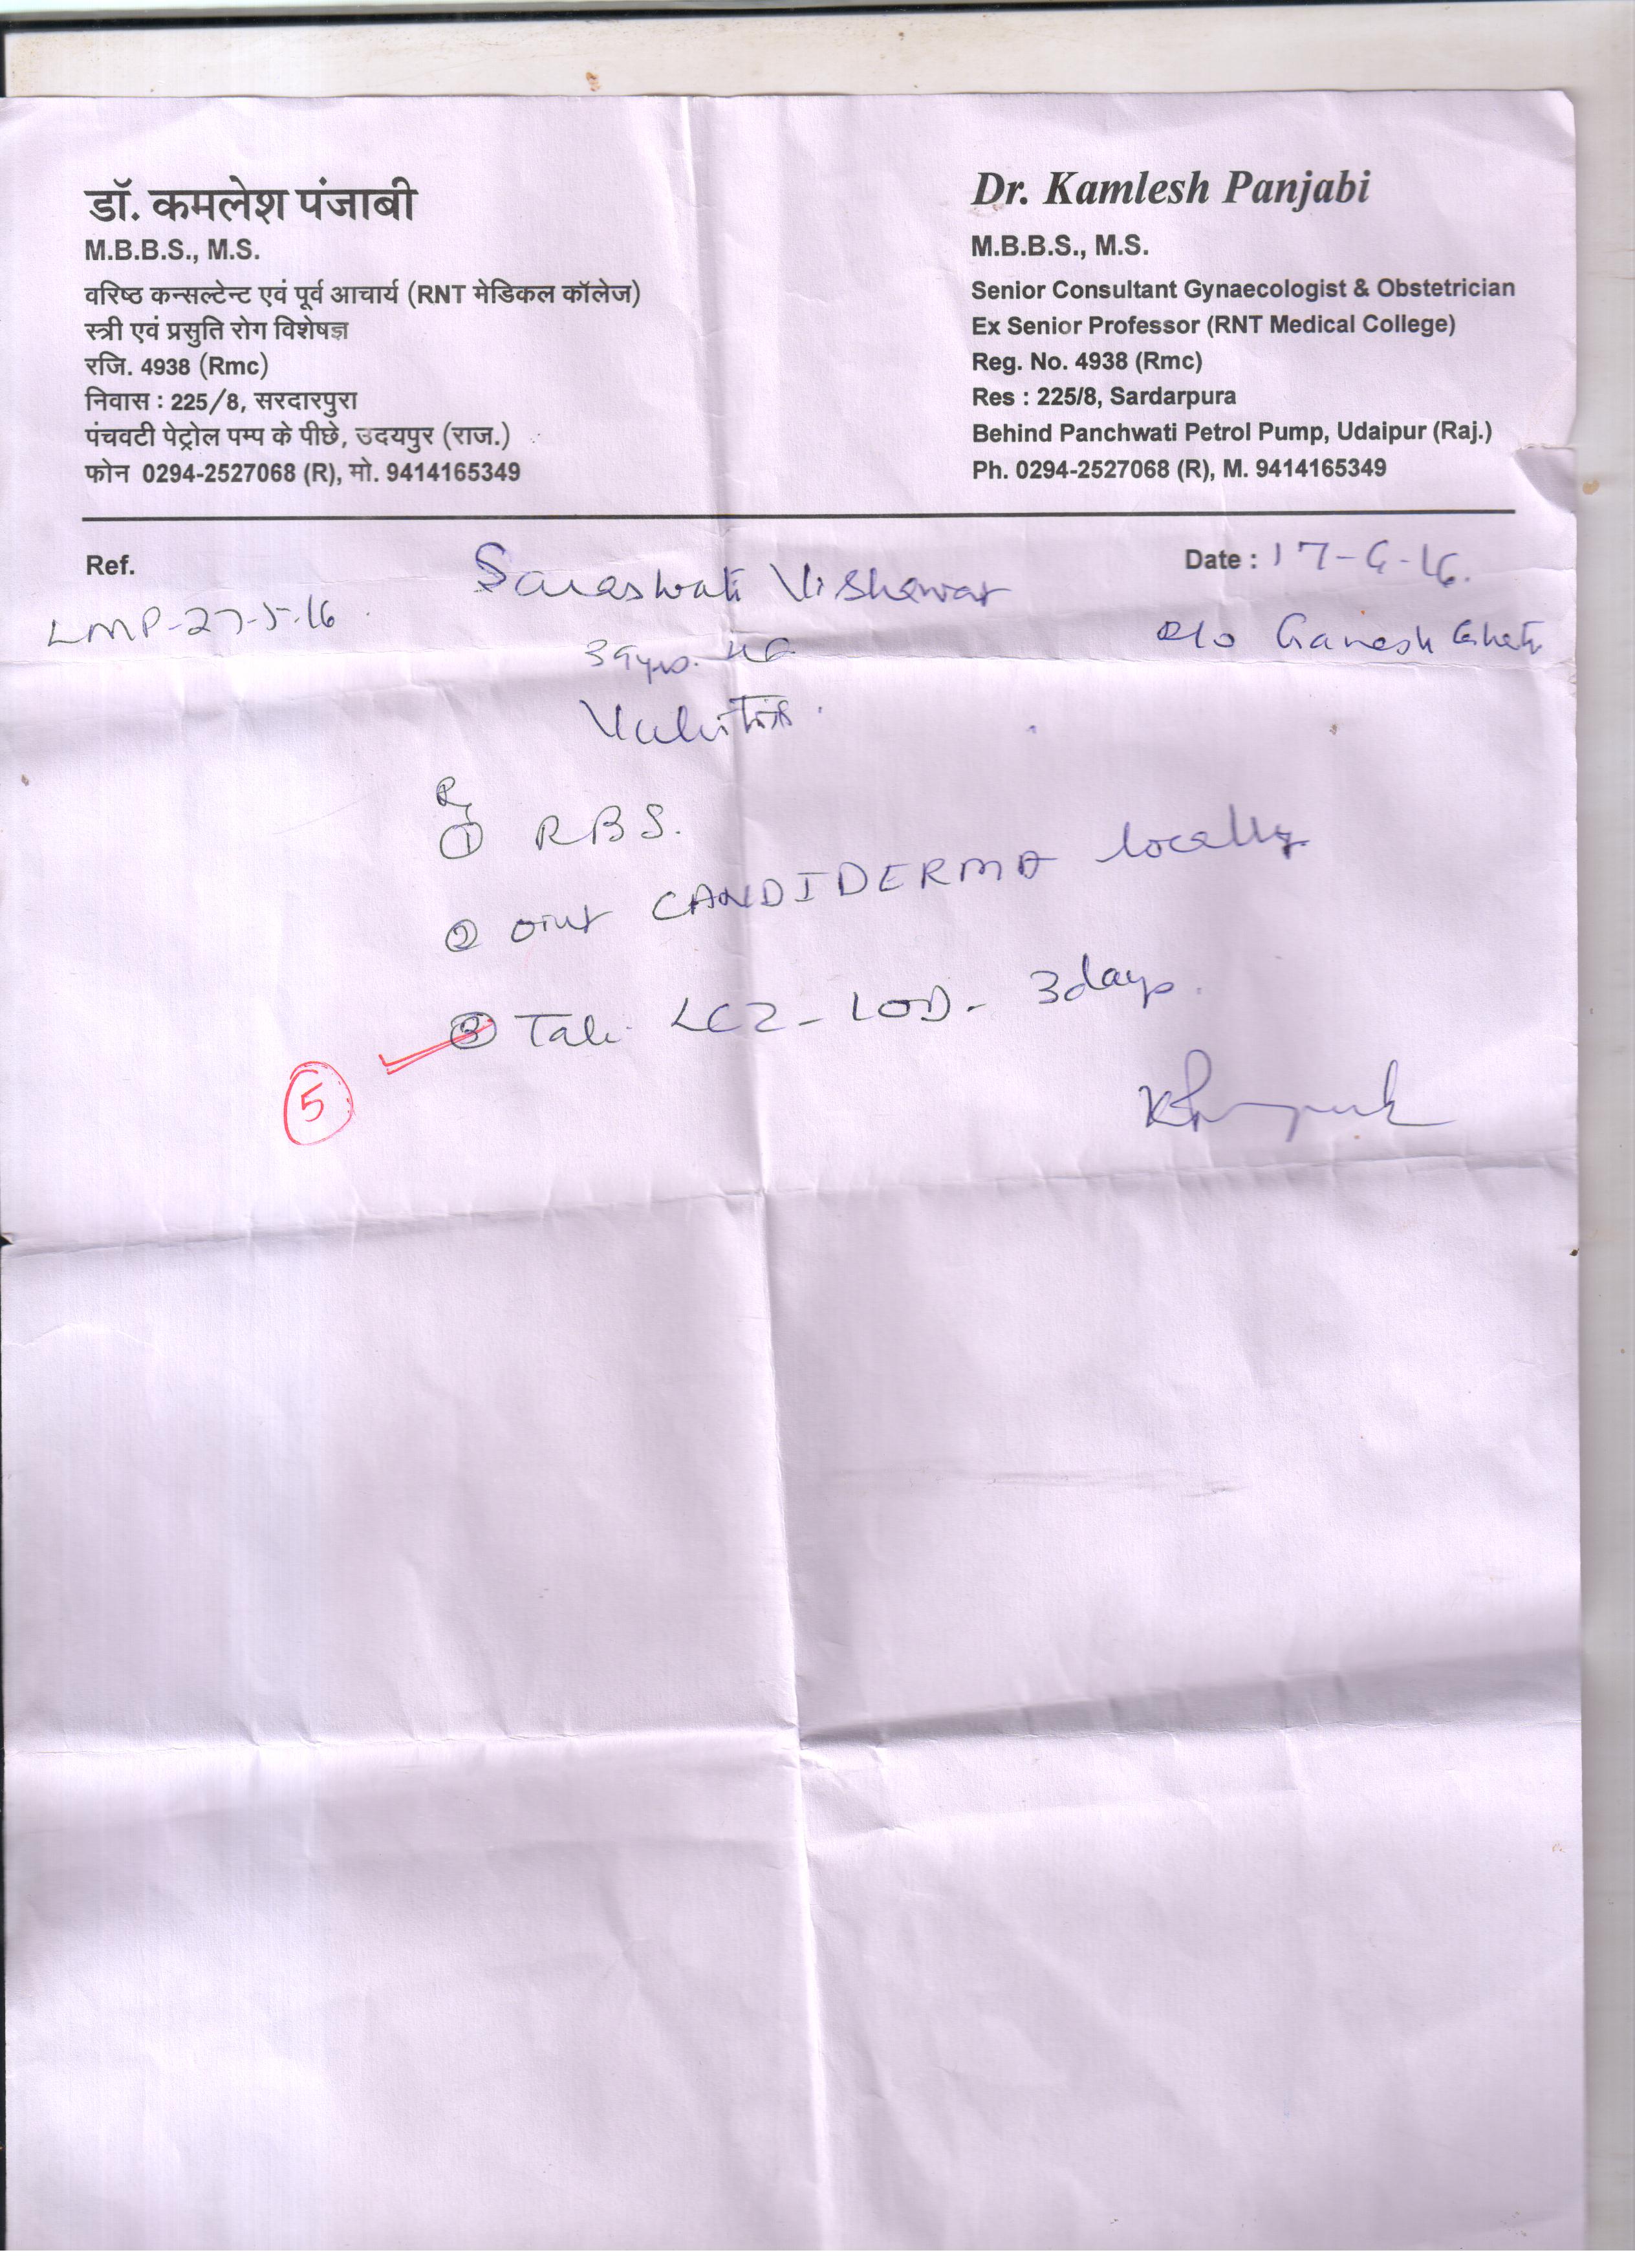 डॉ. कमलेश पंजाबी
M.B.B.S., M.S.
वरिष्ठ कन्सल्टेन्ट एवं पूर्व आचार्य (RNT मेडिकल कॉलेज)
स्त्री एवं प्रसुति रोग विशेषज्ञ
रजि. 4938 (Rmc)
निवास : 225/8, सरदारपुरा
पंचवटी पेट्रोल पम्प के पीछे, उदयपुर (राज.)
फोन 0294-2527068 (R), मो. 9414165349
Dr. Kamlesh Panjabi
M.B.B.S., M.S.
Senior Consultant Gynaecologist & Obstetrician
Ex Senior Professor (RNT Medical College)
Reg. No. 4938 (Rmc)
Res : 225/8, Sardarpura
Behind Panchwati Petrol Pump, Udaipur (Raj.)
Ph. 0294-2527068 (R), M. 9414165349
Ref.
Date : 17-6-16.
LMP-27-5-16
Saraswati
R/o Ganesh Ghati
39yrs.
Vulvitis.
Rx
① RBS.
② oint CANDIDERMA locally
③ Tab. LCZ-1OD- 3days.
5